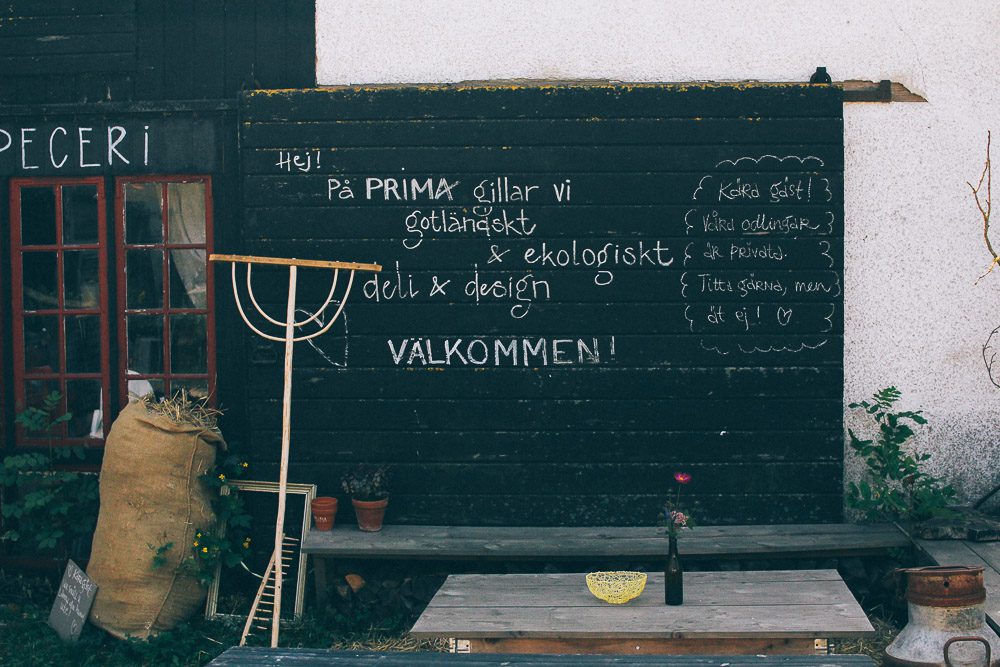 PECERi
Hej!
På PRIMA gillar vi
gotländskt
& ekologiskt
deli & design
VÄLKOMMEN!
Kära gäst!
Våra odlingar
är privata.
Titta gärna, men
ät ej! ♡